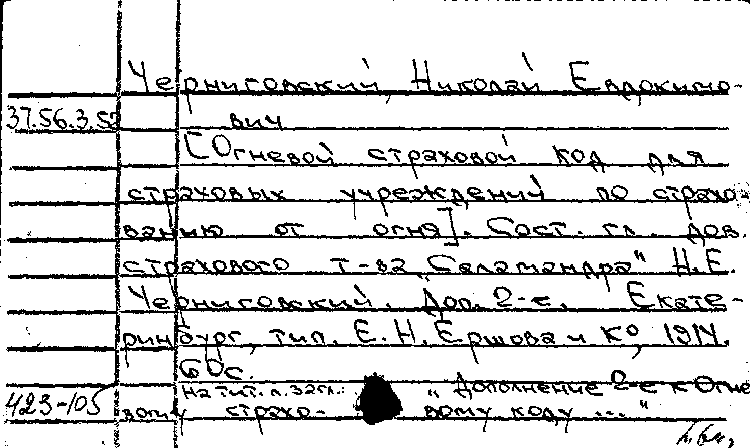 Черниговский, Николай Евдокимо-
37.56.3.52 вич
[Огневой страховой код для
страховых учреждений по страхо-
ванию от огня]. Сост. гл. дов.
страхового т-ва "Саламандра" Н.Е.
Черниговский. Доп. 2-е. Екате-
ринбург, тип. Е.Н. Ершова и К°, 1914.
60 с.
На тит. л. загл.: "Дополнение 2-е к Огне
423-105 вому страхо- вому коду ..."